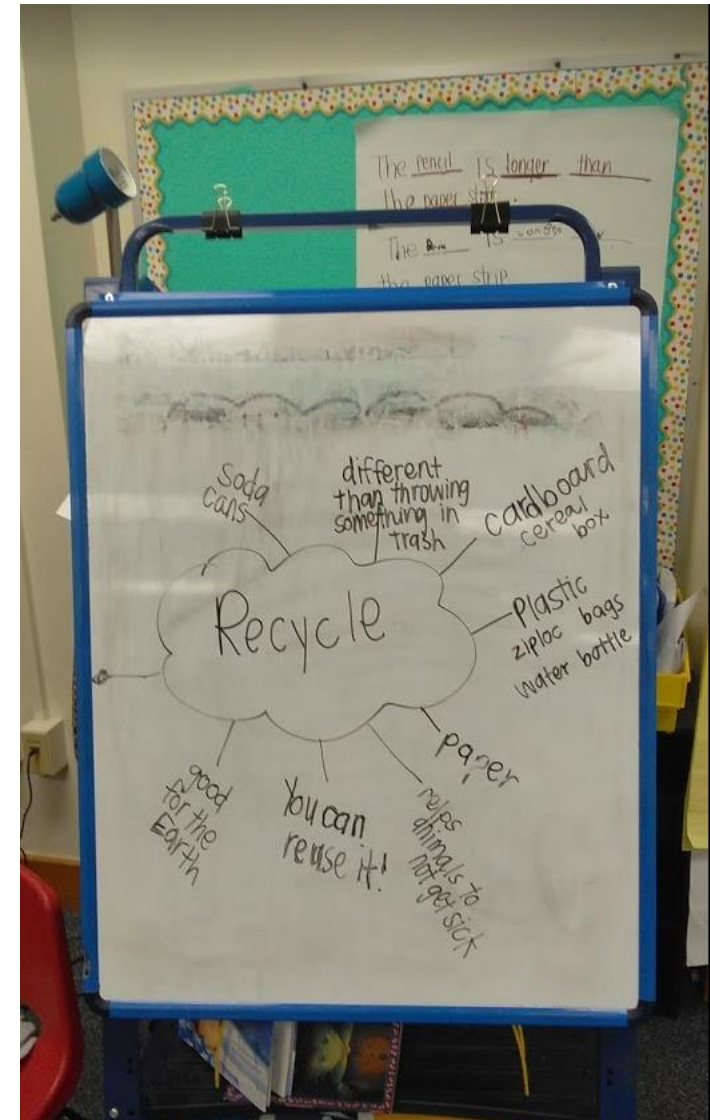 The pencil is longer than
the paper strip.
The is longer
the paper strip.
soda
cans
different
than throwing
something in
trash
cardboard
cereal
box
Recycle
Plastic
ziploc bags
water bottle
paper
helps
animals to
not get sick
You can
reuse it!
good
for the
Earth